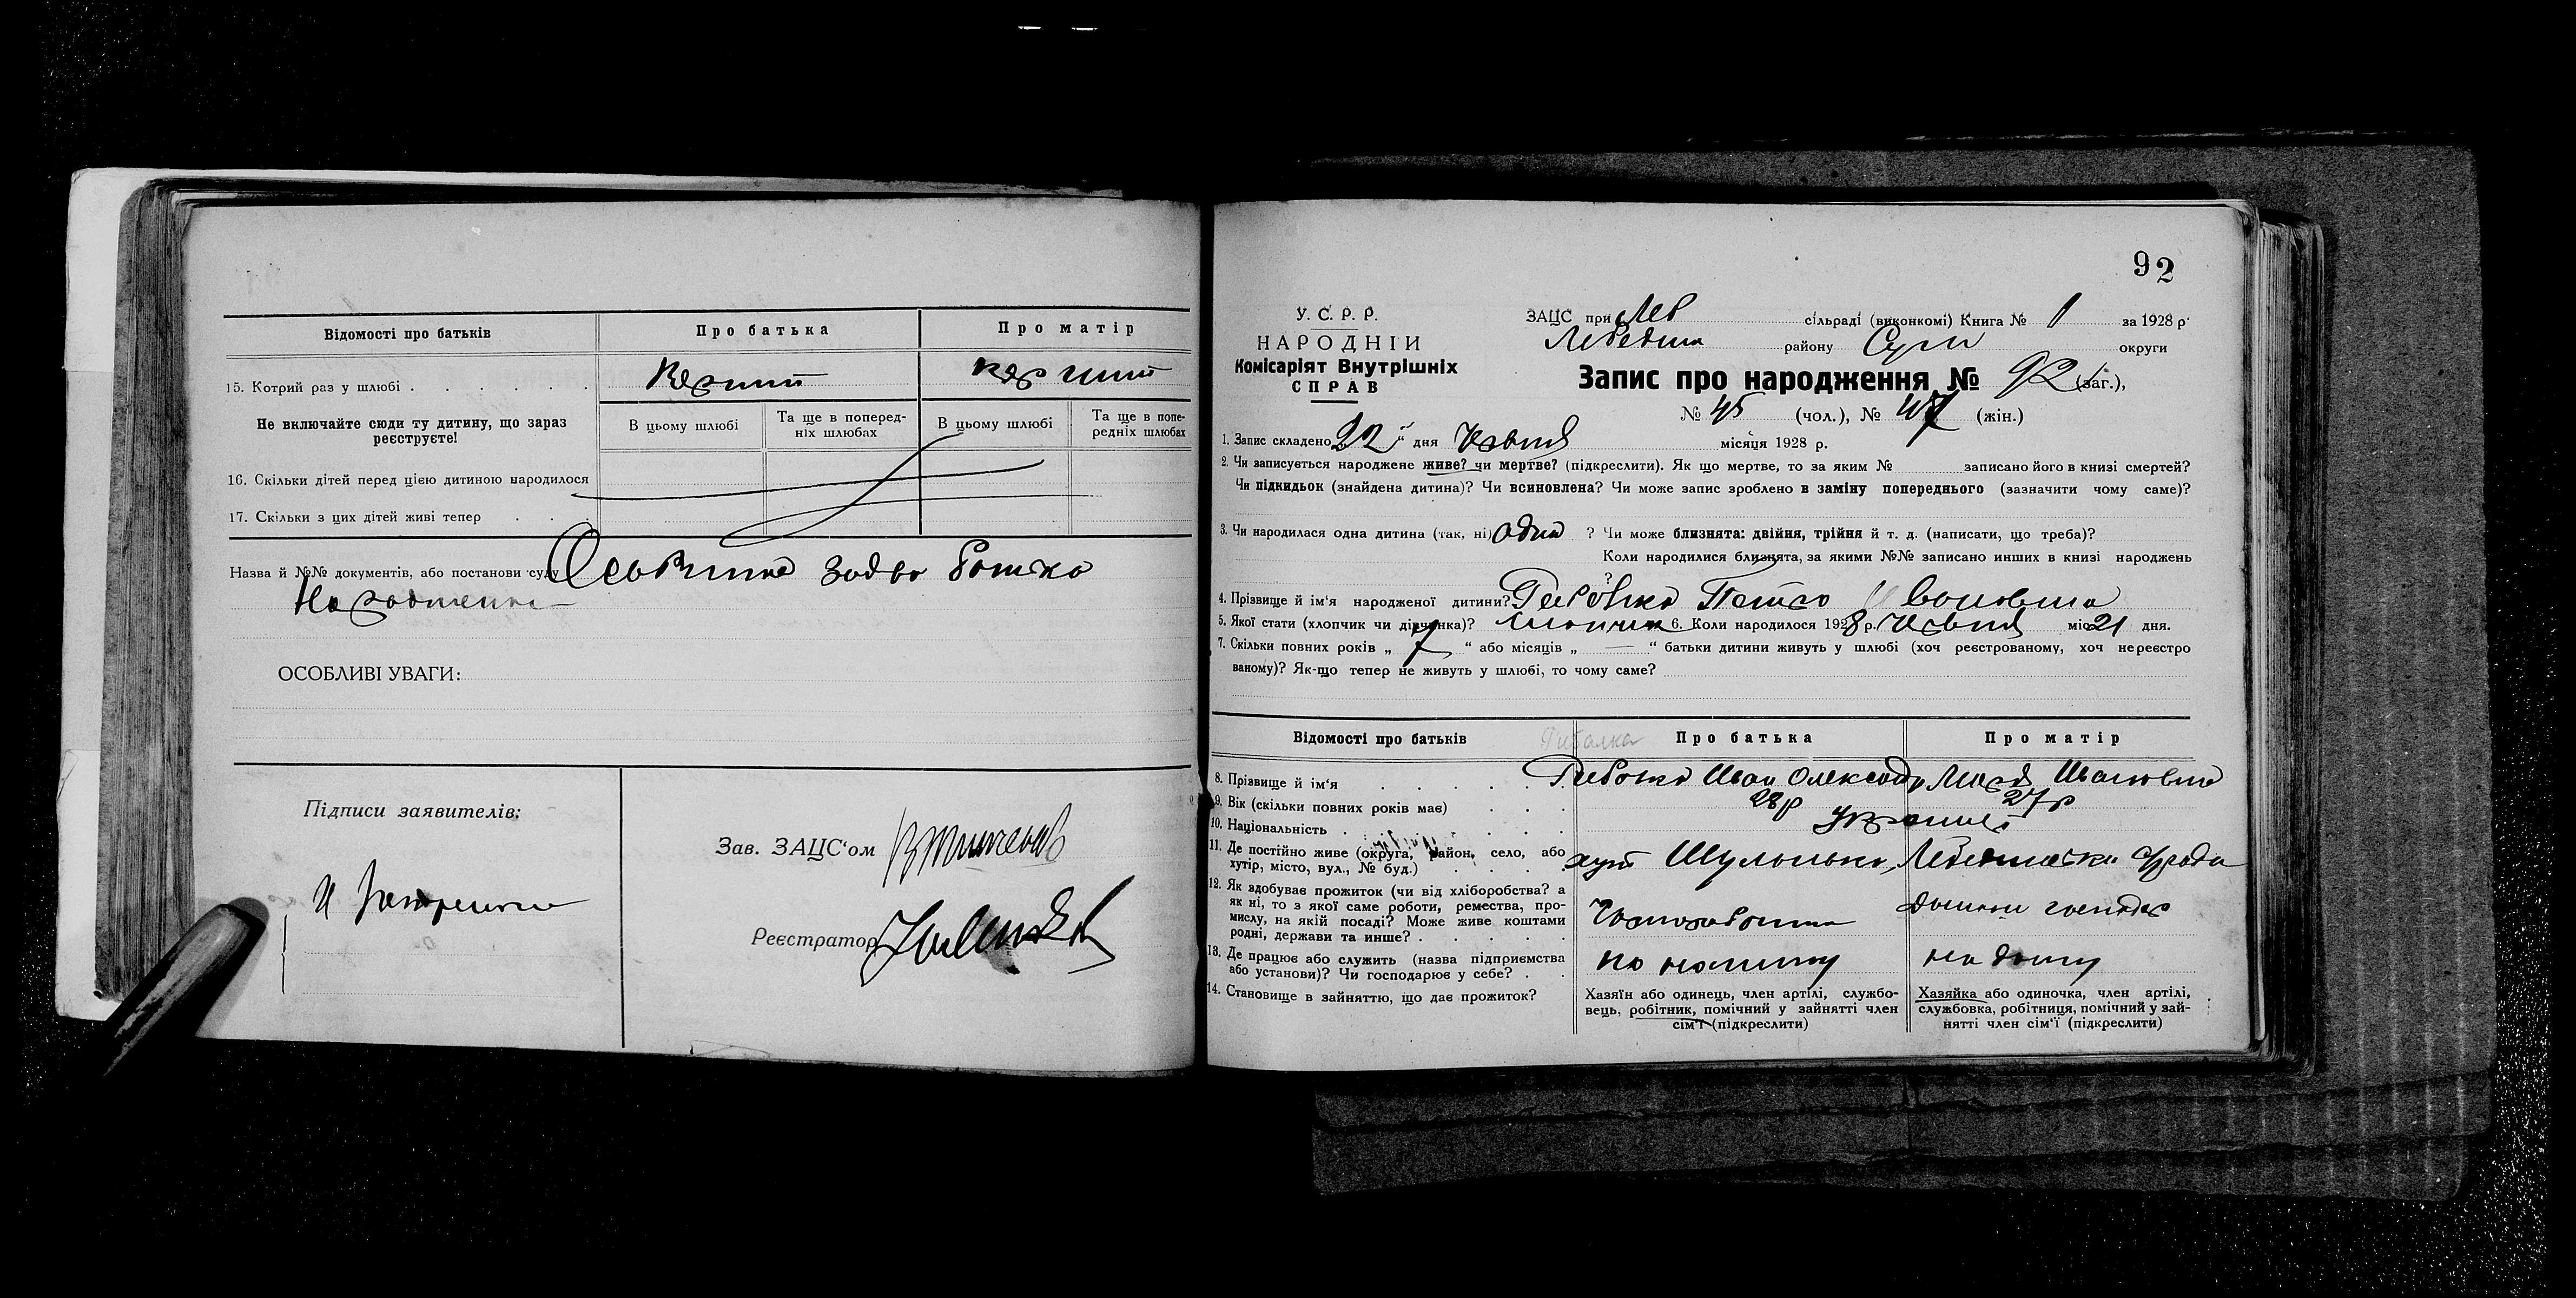 Відомості про батьків
Про батька
Про матір
15. Котрий раз у шлюбі . . . . .
Не включайте сюди ту дитину, що зараз реєструєте!
В цьому шлюбі
Та ще в поперед-
ніх шлюбах
В цьому шлюбі
Та ще в попе-
редніх шлюбах
16. Скільки дітей перед цією дитиною народилося
17. Скільки з цих дітей живі тепер . . .
Назва й №№ документів, або постанови суду
ОСОБЛИВІ УВАГИ:
Підписи заявителів:
Зав. ЗАЦС'ом
Реєстратор
92
У. С. Р. Р.
НАРОДНІЙ
Комісаріят Внутрішніх
СПРАВ
ЗАЦС при Леб сільраді (виконкомі) Книга № 1 за 1928 р.
району Суми округи
Запис про народження № 92 (заг.),
№ 45 (чол.), № 47 (жін.)
1. Запис складено 22 „ дня Червня місяця 1928 р.
2. Чи записується народжене живе? чи мертве? (підкреслити). Як що мертве, то за яким № записано його в книзі смертей?
Чи підкидьок (знайдена дитина)? Чи всиновлена? Чи може запис зроблено в заміну попереднього (зазначити чому саме)?
3. Чи народилася одна дитина (так, ні) одна ? Чи може близнята: двійня, трійня й т. д. (написати, що треба)?
Коли народилися близнята, за якими №№ записано инших в книзі народжень
?
4. Прізвище й ім'я народженої дитини? Рибалка Петро Іванович
5. Якої стати (хлопчик чи дівчинка)? Хлопчик 6. Коли народилося 1928 р. Червня міс. 21 дня.
7. Скільки повних років „ 7 “ або місяців „ — “ батьки дитини живуть у шлюбі (хоч реєстрованому, хоч нереєстро
ваному)? Як-що тепер не живуть у шлюбі, то чому саме?
Відомості про батьків
Рибалка
Про батька
Про матір
8. Прізвище й ім'я . . . . . Рибалка Иван Олександр Марія Ивановна
9. Вік (скільки повних років має) . . . 28 р 27 р
10. Національність . . . . .
11. Де постійно живе (округа, район, село, або
хутір, місто, вул., № буд.) . . . .
хут
12. Як здобуває прожиток (чи від хліборобства? а
як ні, то з якої саме роботи, ремества, про-
мислу, на якій посаді? Може живе коштами
родні, держави та инше? . . . . .
Чорнороботник
домашн господар
13. Де працює або служить (назва підприємства
або установи)? Чи господарює у себе? . .
на дому
14. Становище в зайняттю, що дає прожиток?
Хазяїн або одинець, член артілі, службо-
вець, робітник, помічний у зайнятті член
сім'ї (підкреслити)
Хазяйка або одиночка, член артілі,
службовка, робітниця, помічний у зай-
нятті член сім'ї (підкреслити)